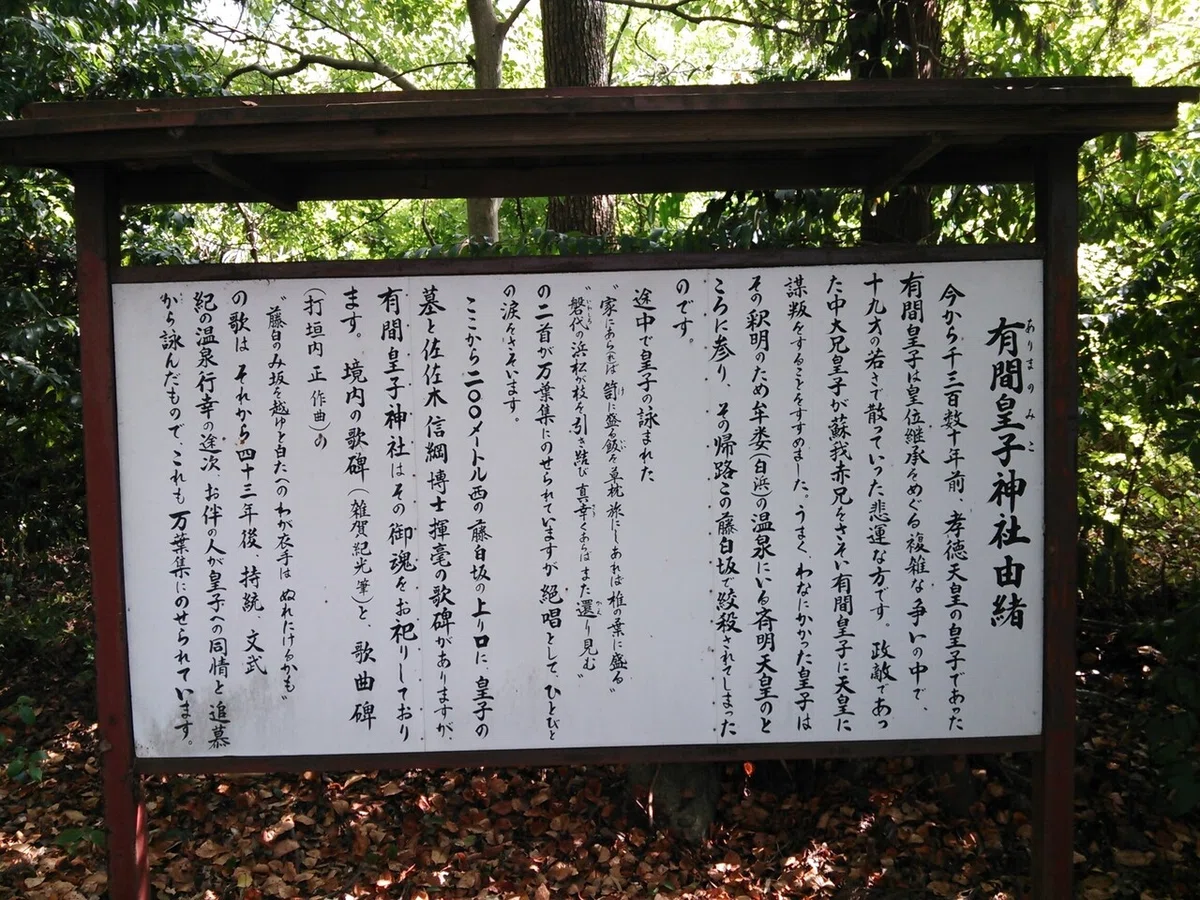 有間皇子神社由緒
ありまのみこ
今から千三百数十年前、孝徳天皇の皇子であった
有間皇子は皇位継承をめぐる複雑な争いの中で、
十九才の若さで散っていった悲運な方です。政敵であっ
た中大兄皇子が蘇我赤兄をさそい有間皇子に天皇に
謀叛をすることをすすめました。うまくわなにかかった皇子は
その釈明のため牟婁(白浜)の温泉にいる斉明天皇のと
ころに参り、その帰路この藤白坂で絞殺されてしまった
のです。
途中で皇子の詠まれた
"家にあれば笥に盛る飯を草枕旅にしあれば椎の葉に盛る"
"磐代の浜松が枝を引き結び真幸くあらばまた還り見む"
の二首が万葉集にのせられていますが絶唱として、ひとびと
の涙をさそいます。
ここから二〇〇メートル西の藤白坂の上り口に、皇子の
墓と佐佐木信綱博士揮毫の歌碑がありますが、
有間皇子神社はその御魂をお祀りしており
ます。境内の歌碑(雑賀紀光筆)と、歌曲碑
(打垣内正作曲)の
"藤白のみ坂を越ゆと白たへのわが衣手はぬれにけるかも"
の歌はそれから四十三年後持統、文武
紀の温泉行幸の途次、お伴の人が皇子への同情と追慕
から詠んだもので、これも万葉集にのせられています。